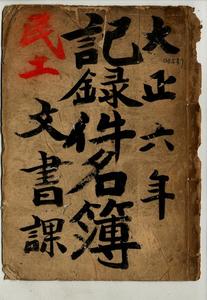 大正六年
記録件名簿
文書課
民土